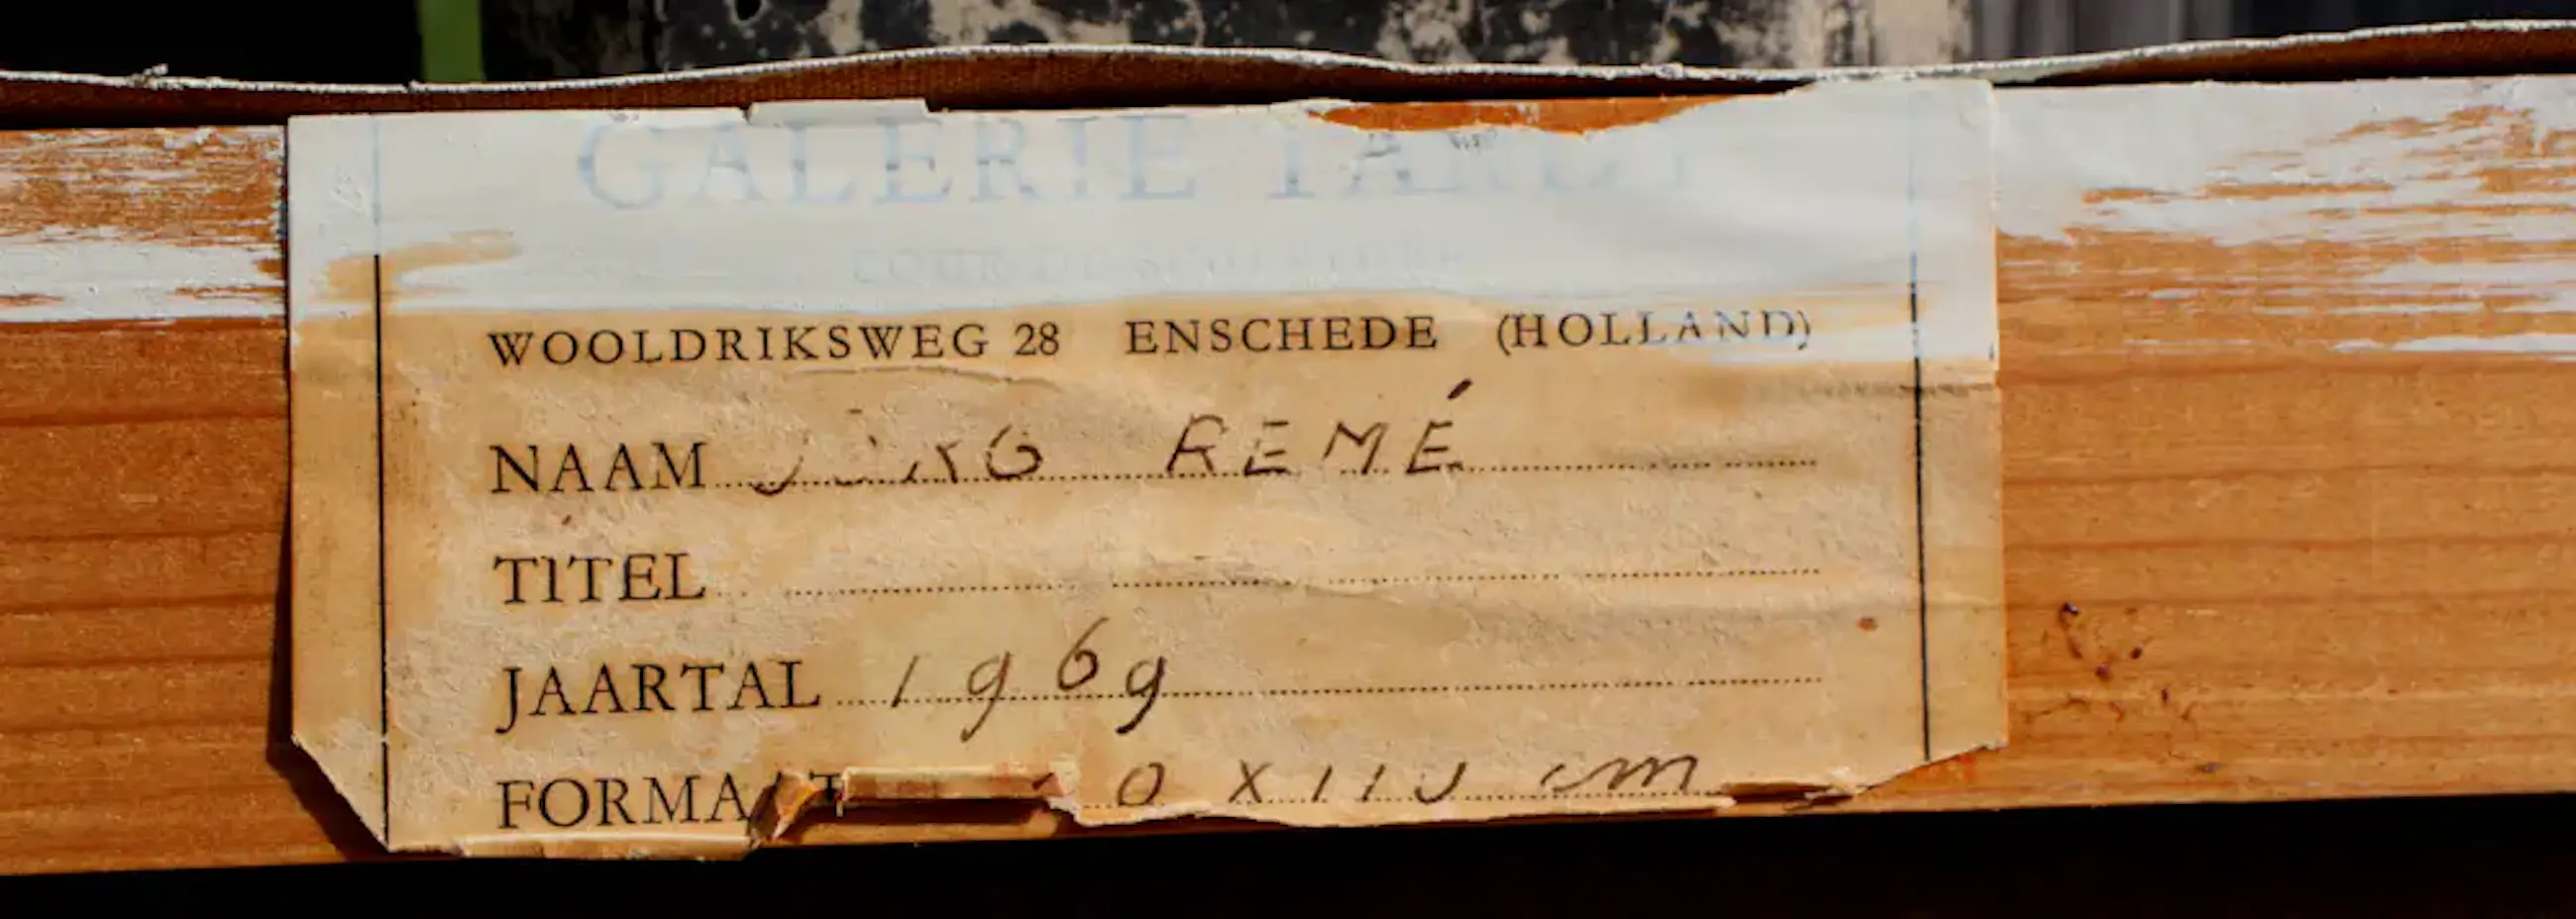 GALERIE
WOOLDRIKSWEG 28 ENSCHEDE (HOLLAND)
NAAM REMÉ
TITEL
JAARTAL 1969
FORMAAT 0 X 110 cm